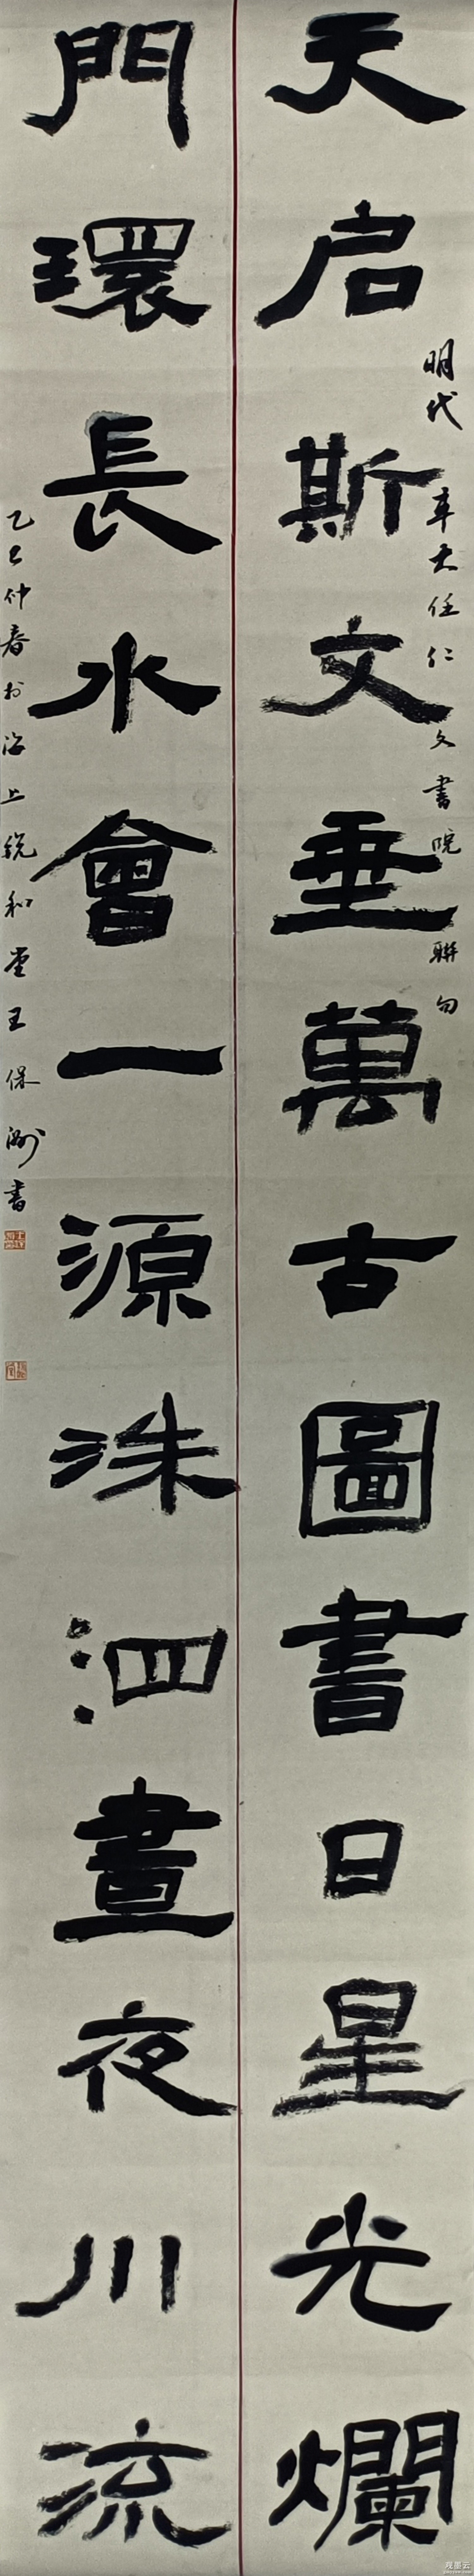 天启斯文垂萬古圖書日星光爛
明代辛大任仁文書院聯句
門環長水會一源洙泗晝夜川流
乙巳仲春於海上銳和堂王保洲書
观墨云